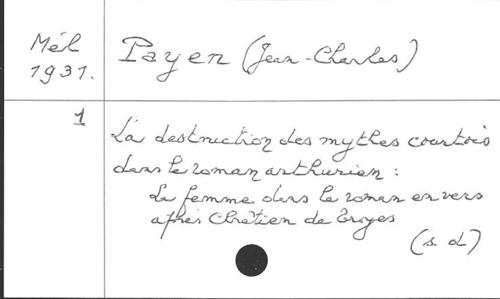 Mél
1931.
Payen (Jean-Charles)
1
La destruction des mythes courtois
dans le roman arthurien :
La femme dans le roman en vers
après Chrétien de Troyes
(s. d.)